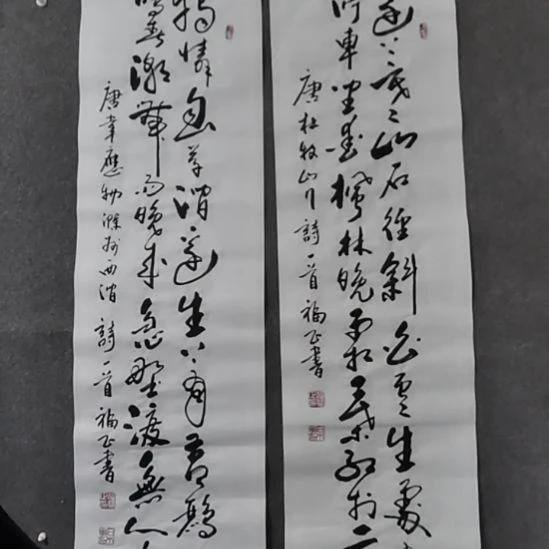 遠上寒山石徑斜白雲生處
停車坐愛楓林晚霜葉紅於二
唐杜牧山行詩一首福正書
獨憐幽草澗邊生上有黃鸝
春潮帶雨晚來急野渡無人
唐韋應物滁州西澗詩一首福正書